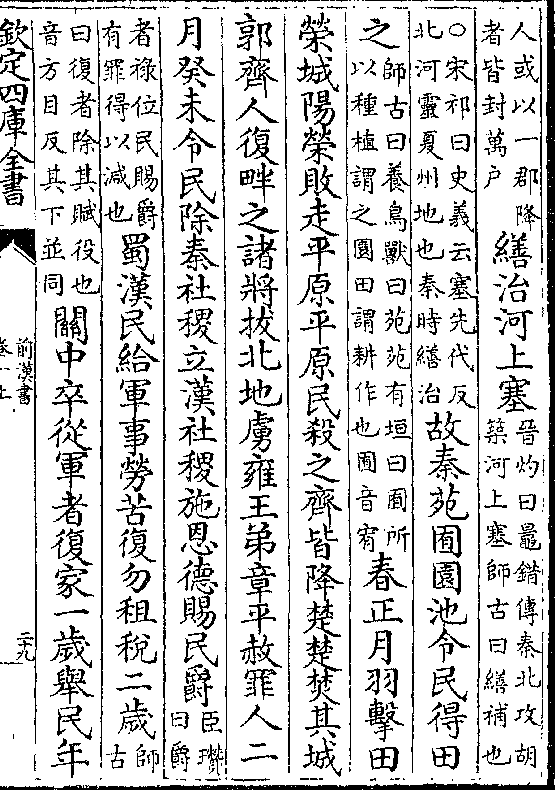 人或以一郡降
者皆封萬户
繕治河上塞
晉灼曰鼂錯傳秦北攻胡
築河上塞師古曰繕補也
○宋祁曰史義云塞先代反
北河靈夏州地也秦時繕治
故秦苑囿園池令民得田
之
師古曰養鳥獸曰苑苑有垣曰囿所
以種植謂之園田謂耕作也囿音宥
春正月羽擊田
榮城陽榮敗走平原平原民殺之齊皆降楚楚焚其城
郭齊人復畔之諸將拔北地虜雍王弟章平赦罪人二
月癸未令民除秦社稷立漢社稷施恩德賜民爵
臣瓚
曰爵
者祿位民賜爵
有罪得以減也
蜀漢民給軍事勞苦復勿租稅二歲
師
古
曰復者除其賦役也
音方目反其下並同
關中卒從軍者復家一歲舉民年
欽定四庫全書
前漢書
卷一上
二十九